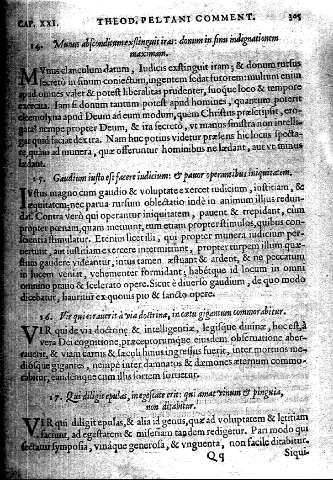 CAP. XXI. THEOD. PELTANI COMMENT. 305
14. Munus absconditum exstinguit iras: donum in sinu indignationem
maximam.
MVnus clanculum datum, Iudicis exstinguit iram; & donum rursus
secretò in sinum coniectum, ingentem sedat furorem: multum enim
apud omnes valet & potest liberalitas prudenter, suoque loco & tempore
exercita. Iam si donum tantum potest apud homines, quantum poterit
eleemosyna apud Deum ad eum modum, quem Christus præscripsit, erogata?
nempe propter Deum, & ita secretò, vt manus sinistra non intelligat
quid faciat dextra. Nam huc potius videtur præsens hic locus spectare,
quàm ad munera, quæ offeruntur hominibus ne lædant, aut vt minus
lædant.
15. Gaudium iusto est facere iudicium: & pauor operantibus iniquitatem.
IVstus magno cum gaudio & voluptate exercet iudicium, iustitiam, &
æquitatem; nec parua rursum oblectatio inde in animum illius redundat.
Contra verò qui operantur iniquitatem, pauent & trepidant, cum
propter pœnam, quam metuunt, tum etiam propter stimulos, quibus conscientia
stimulatur. Etenim licet illi, qui propter munera iudicium peruertunt,
aut iustitiam exercere intermittunt, propter turpem illum quæstum
gaudere videantur, intus tamen æstuant & ardent, & ne peccatum
in lucem veniat, vehementer formidant; habétque id locum in omni
omnino prauo & scelerato opere. Sicut è diuerso gaudium, de quo modo
dicebatur, hauritur ex quouis pio & sancto opere.
16. Vir qui errauerit à via doctrinæ, in cœtu gigantum commorabitur.
VIR qui de via doctrinæ & intelligentiæ, legisque diuinæ, hoc est, à
vera Dei cognitione, præceptorumque eiusdem obseruatione aberrauerit,
& viam carnis & sæculi huius ingressus fuerit, inter mortuos mediosque
gigantes, nempe inter damnatus & dæmones æternum commorabitur,
eandemque cum illis sortem sortietur.
17. Qui diligit epulas, in egestate erit: qui amat vinum & pinguia,
non ditabitur.
VIR qui diligit epulas, & alia id genus, quæ ad voluptatem & lætitiam
faciunt, ad egestatem & miseriam tandem redigetur. Pari modo qui
sectatur symposia, vináque generosa, & vnguenta, non facilè ditabitur.
Qq Siqui-